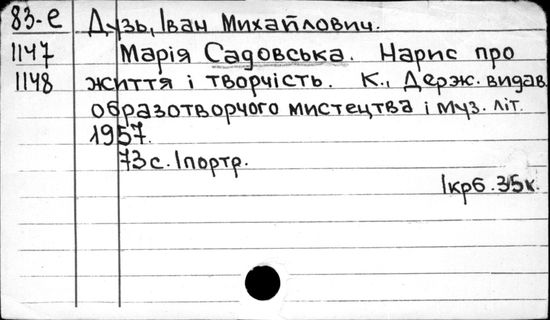 83-е Дузь, Іван Михайлович.
1147 Марія Садовська. Нарис про
1148 життя і творчість. К., Держ. видав.
образотворчого мистецтва і муз. літ.
1957.
73 с. 1 портр.
1 крб. 35 к.